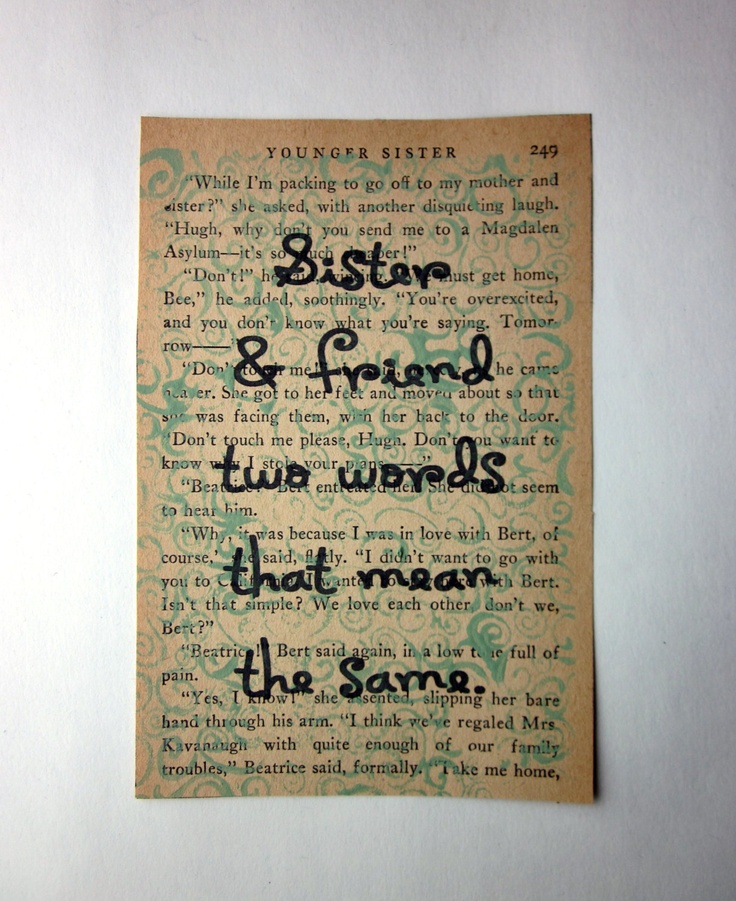 YOUNGER SISTER 249
"While I'm packing to go off to my mother and
sister?" she asked, with another disquieting laugh.
"Hugh, why don't you send me to a Magdalen
Asylum—it's so much cheaper!"
Sister
"Don't!" he said, must get home,
Bee," he added, soothingly. "You're overexcited,
and you don't know what you're saying. Tomor-
row——"
& friend
"Don't touch me!" he came
nearer. She got to her feet and moved about so that
she was facing them, with her back to the door.
"Don't touch me please, Hugh. Don't you want to
know why I stole your plans——"
two words
"Beatrice!" Bert entreated her. She did not seem
to hear him.
"Why, it was because I was in love with Bert, of
course," she said, flatly. "I didn't want to go with
that mean
you to with Bert.
Isn't that simple? We love each other, don't we,
Bert?"
"Beatrice!" Bert said again, in a low tone full of
pain.
the same.
"Yes, I know!" she assented, slipping her bare
hand through his arm. "I think we've regaled Mrs
Kavanaugh with quite enough of our family
troubles," Beatrice said, formally. "Take me home,